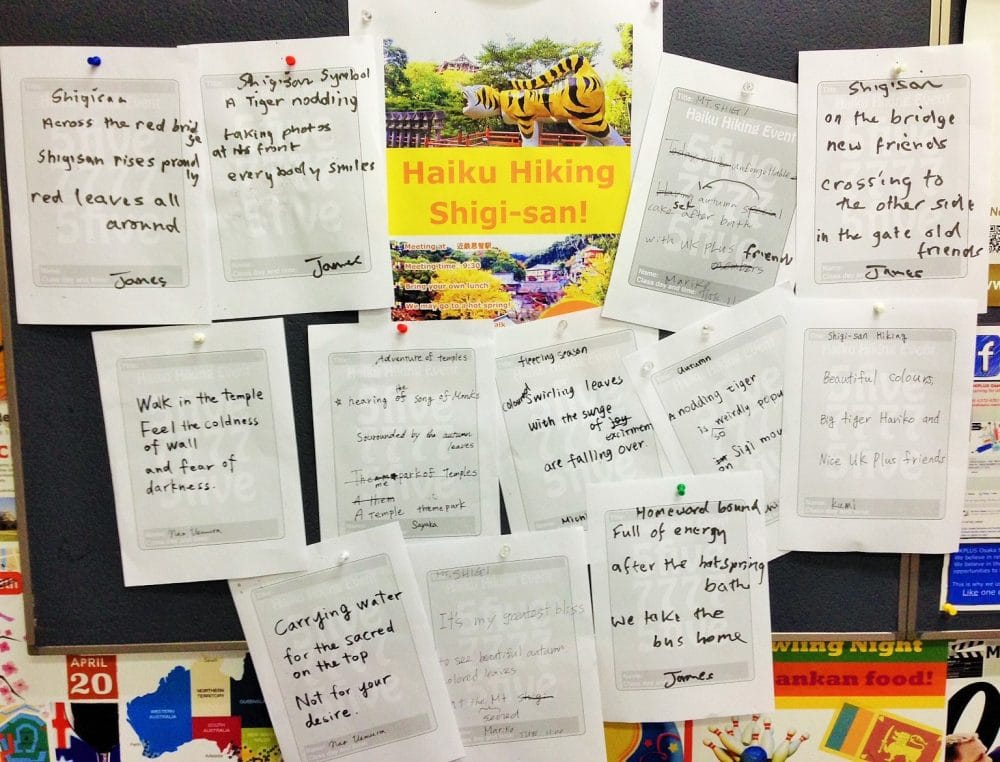 Shigisan
Across the red brid
ge
Shigisan rises proud
ly
red leaves all
around
James
Shigisan Symbol
A Tiger nodding
taking photos
at its front
everybody smiles
James
Haiku Hiking
Shigi-san!
Meeting at 近鉄恩智駅
Meeting time 9:30
Bring your own lunch
We may go to a hot spring!
alk
Title: MT. SHIGI
Haiku Hiking Event
unforgettable
Having autumn special
set
cake after bath
with UK Plus friends
members
Name: Mariko
Class day and time:
Shigisan
on the bridge
new friends
crossing to
the other side
in the gate old
friends
James
Walk in the temple
Feel the coldness
of wall
and fear of
darkness.
Nao Uemura
Adventure of temples
hearing of the song of Monks
Sourrounded by the autumn
leaves
Theme park of Temples
A them
A Temple theme park
Sayaka
fleeting season
colound swirling leaves
With the surge
of joy
excitement
are falling over.
Michi
autumn
A nodding tiger
is weirdly popu
so
on Sigi mou
Shigi-san Hiking
Beautiful colours,
Big tiger Hariko and
Nice UK Plus friends
Kumi
Carrying water
for the sacred
on the top
Not for your
desire.
Nao Uemura
MT. SHIGI
It's my greatest bliss
to see beautiful autumn
colored leaves
at the Mt Shigi
sacred
Mariko
Homeward bound
Full of energy
after the hotspring
bath
we take the
bus home
James
APRIL
20
WESTERN
AUSTRALIA
NORTHERN
TERRITORY
SOUTH
AUSTRALIA
QUEENSLAND
wling Night
ankan food!
KPLUS Osaka
We believe in
We believe in the
opportunities to
This is why we
Like one